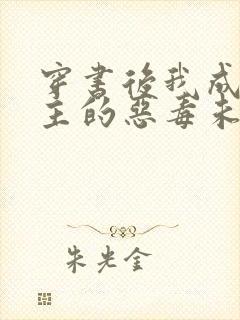 穿书后我成
主的恶毒未
朱光金